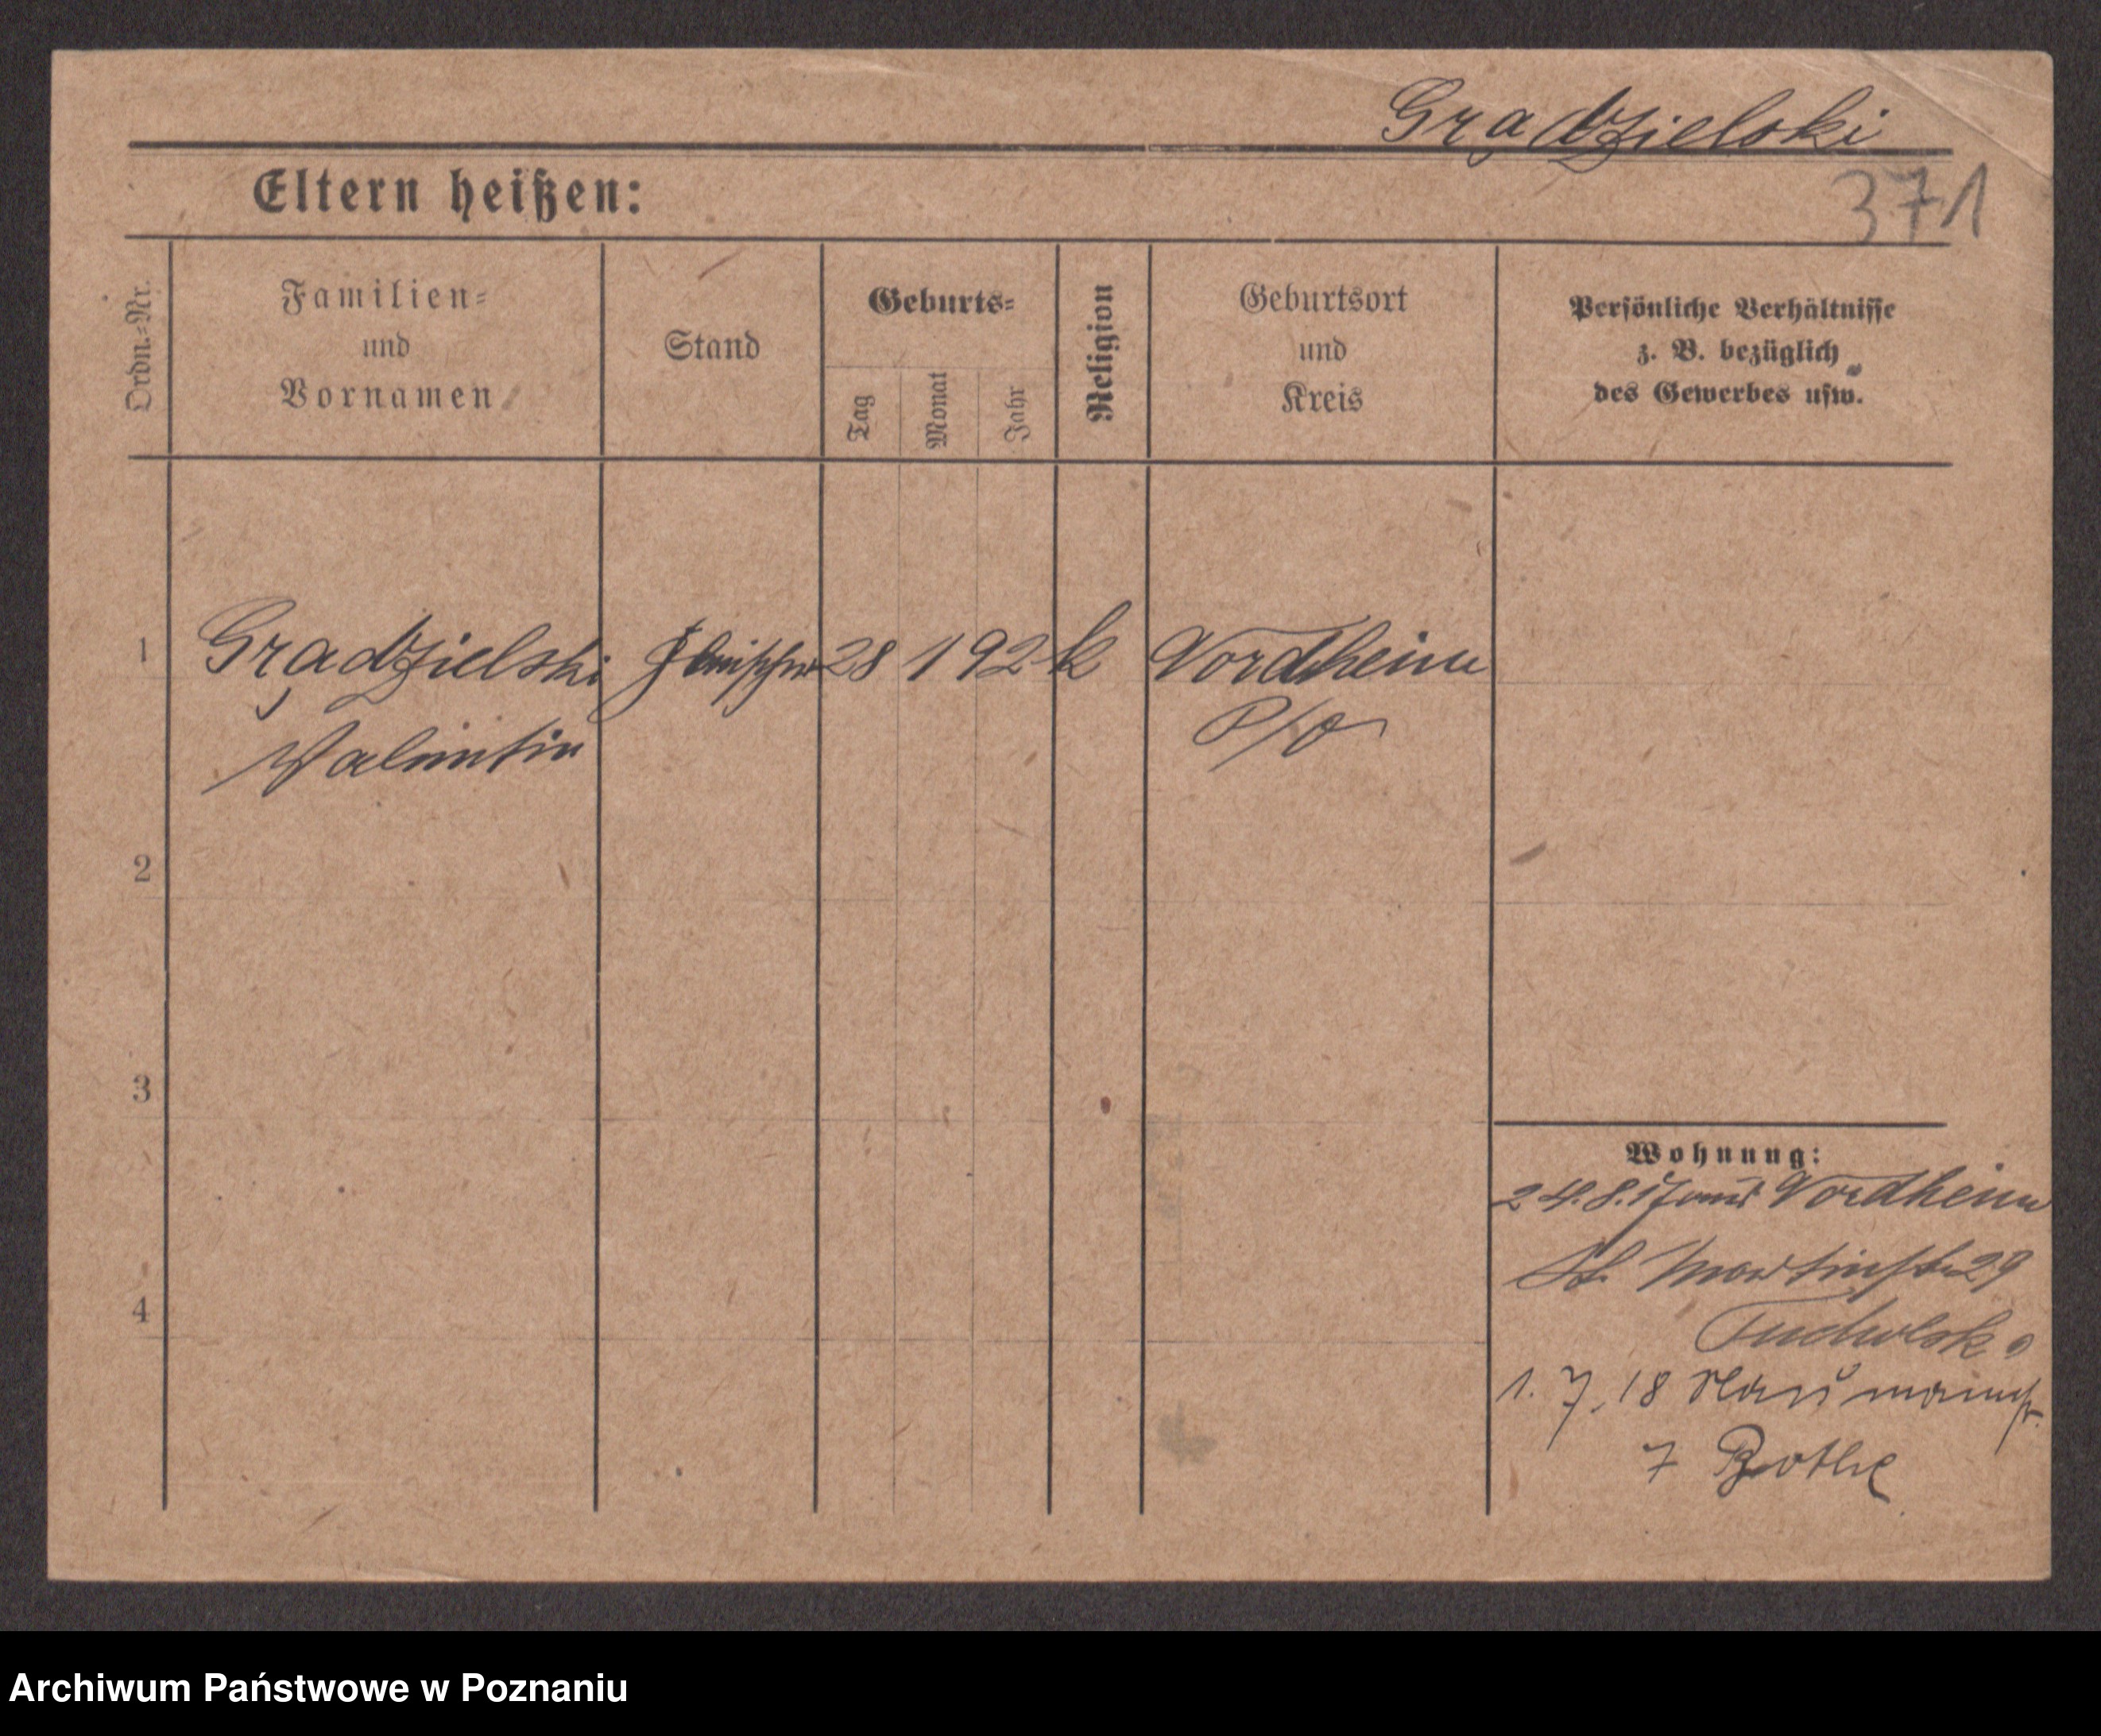 Grądzielski
371
Eltern heißen:
Ordn.-Nr.
Familien-
und
Vornamen
Stand
Geburts-
Tag
Monat
Jahr
Religion
Geburtsort
und
Kreis
Persönliche Verhältnisse
z. B. bezüglich
des Gewerbes usw.
1
Grądzielski Fleischer 28 1 92 k Vordheim
Valentin P/O
2
3
4
Wohnung:
24.8.17 aus Vordheim
St. Martinstr 29
1. 7. 18 Naumannstr.
7 Bothe
Archiwum Państwowe w Poznaniu